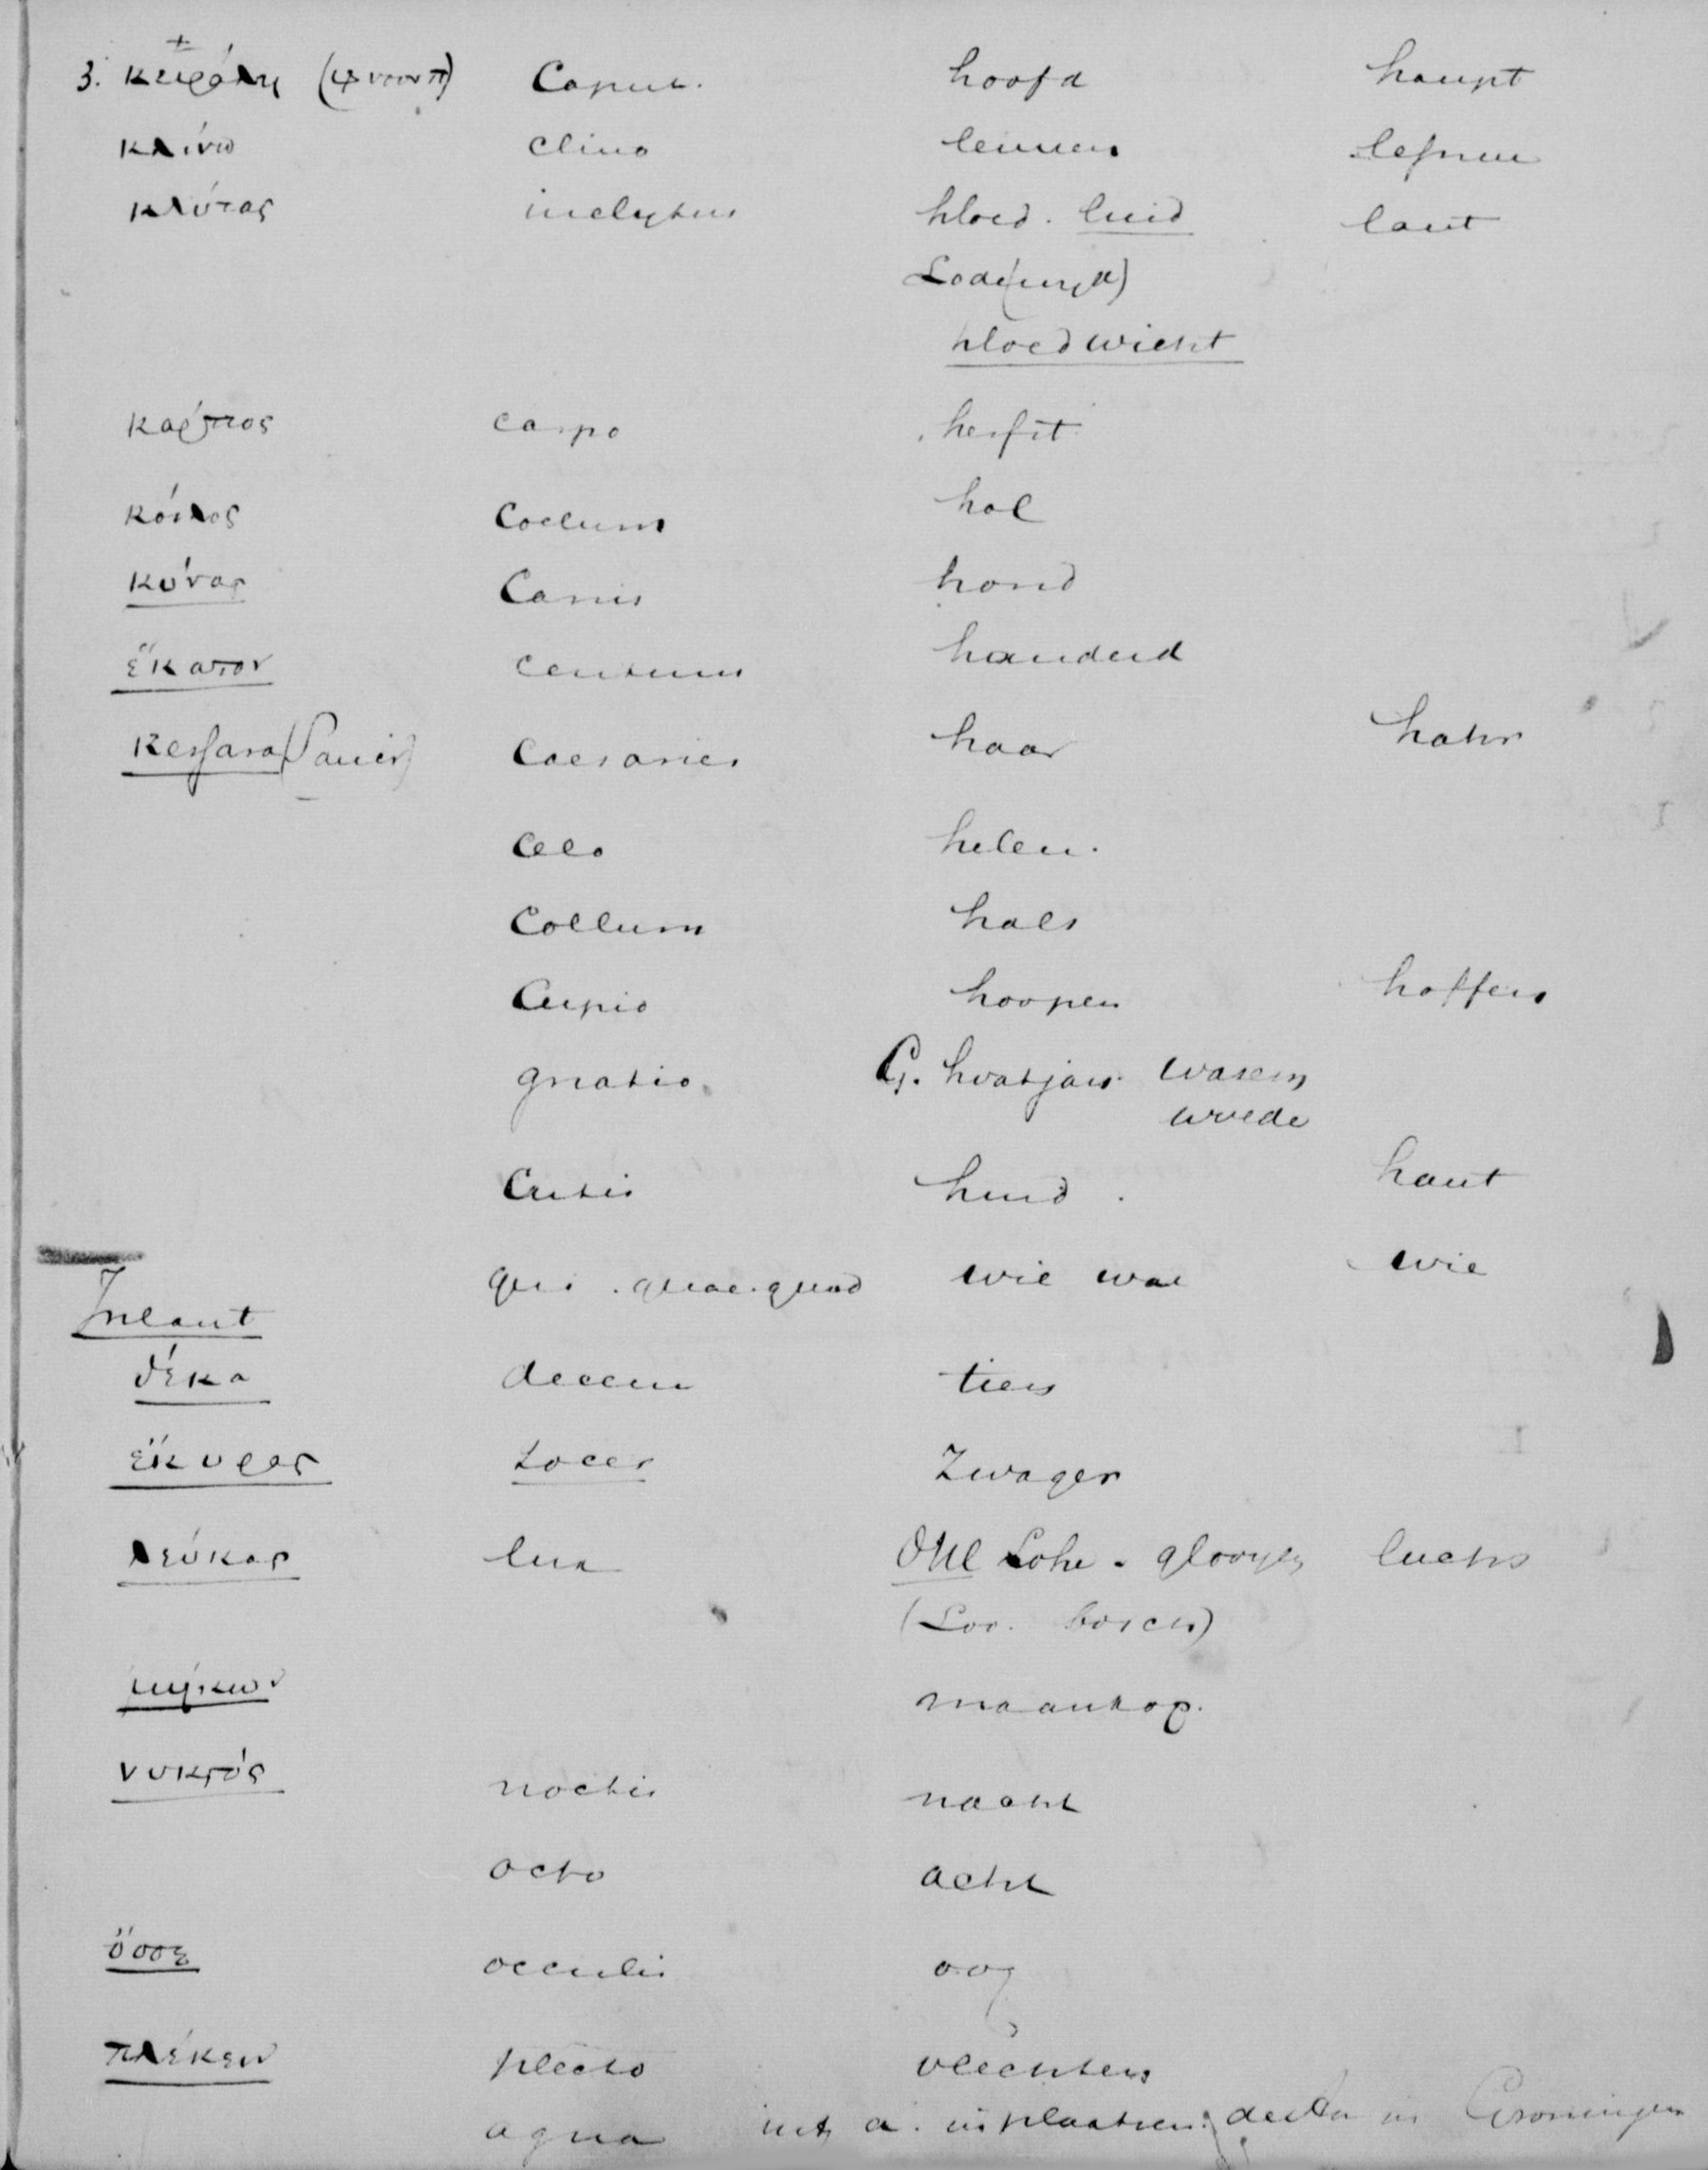 3. κεφάλη (φ voor π) Caput. hoofd haupt
κλίνω clino leunen lehnen
κλύτος inclytus hloed. luid laut
Lode(wyk)
hloedwicht
κάρπος carpo herfst
κόιλος Coelum hol
κύνος Canis hond
ἕκατον centum honderd
Kesjara (Sanscr) Caesaries haar hahr
Celo helen.
Collum hals
Cupio hoopen hoffen
quatio G. hvatjan wasem
wrede
Cutis huid. haut
qui. quae. quod wie wat wie
Inlaut
δέκα decem tien
ἕκυρος socer Zwager
λεύκος lux OHD Lohe. glooyen luchs
(Loo. bosch)
μήκων maankop.
νυκτός noctis nacht
octo acht
ὄσσε occulis oog
πλέκειν plecto vlechten
aqua a. in plaatsen: in Groningen